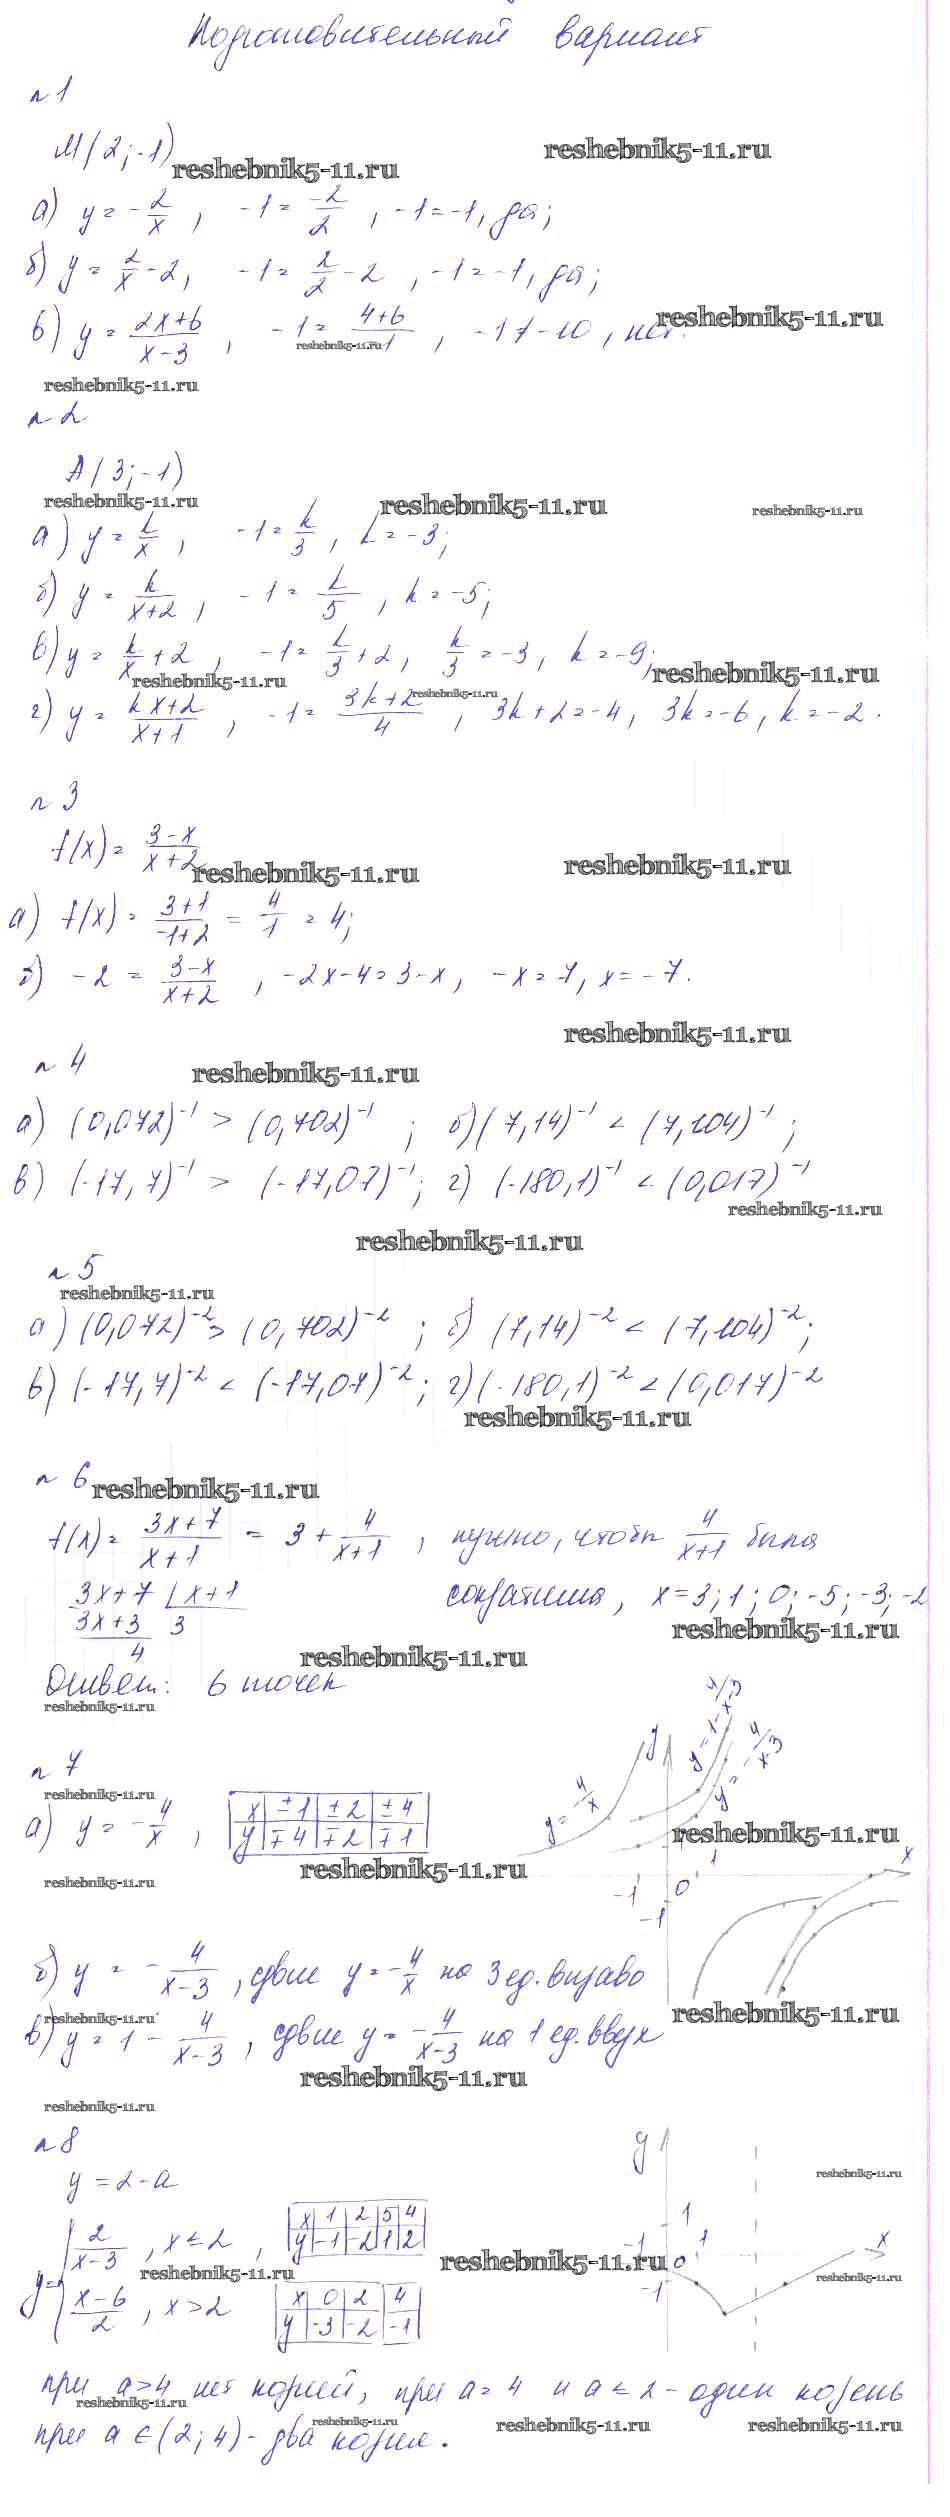 Подготовительный вариант
№1
М(2;-1)
reshebnik5-11.ru
reshebnik5-11.ru
а) y = -2/x, -1 = -2/2, -1 = -1, да;
б) y = 2/x - 2, -1 = 2/2 - 2, -1 = -1, да;
в) y = (2x+6)/(x-3), -1 = (4+6)/-1, -1 ≠ -10, нет.
reshebnik5-11.ru
reshebnik5-11.ru
reshebnik5-11.ru
№2
A(3;-1)
reshebnik5-11.ru
reshebnik5-11.ru
reshebnik5-11.ru
а) y = k/x, -1 = k/3, k = -3;
б) y = k/(x+2), -1 = k/5, k = -5;
в) y = k/x + 2, -1 = k/3 + 2, k/3 = -3, k = -9;
reshebnik5-11.ru
reshebnik5-11.ru
reshebnik5-11.ru
г) y = (kx+2)/(x+1), -1 = (3k+2)/4, 3k+2 = -4, 3k = -6, k = -2.
№3
f(x) = (3-x)/(x+2)
reshebnik5-11.ru
reshebnik5-11.ru
а) f(x) = (3+1)/(-1+2) = 4/1 = 4;
б) -2 = (3-x)/(x+2), -2x-4 = 3-x, -x = 7, x = -7.
reshebnik5-11.ru
№4
reshebnik5-11.ru
а) (0,072)⁻¹ > (0,702)⁻¹; б) (7,14)⁻¹ < (7,104)⁻¹;
в) (-17,7)⁻¹ > (-17,07)⁻¹; г) (-180,1)⁻¹ < (0,017)⁻¹
reshebnik5-11.ru
reshebnik5-11.ru
№5
reshebnik5-11.ru
а) (0,072)⁻² > (0,702)⁻²; б) (7,14)⁻² < (7,104)⁻²;
в) (-17,7)⁻² < (-17,07)⁻²; г) (-180,1)⁻² < (0,017)⁻²
reshebnik5-11.ru
№6
reshebnik5-11.ru
f(x) = (3x+7)/(x+1) = 3 + 4/(x+1), нужно, чтобы 4/(x+1) была
3x+7 | x+1 сократима, x = 3; 1; 0; -5; -3; -2
3x+3 3
4
reshebnik5-11.ru
reshebnik5-11.ru
Ответ: 6 точек
reshebnik5-11.ru
№7
reshebnik5-11.ru
а) y = -4/x,
x ±1 ±2 ±4
y ∓4 ∓2 ∓1
reshebnik5-11.ru
reshebnik5-11.ru
reshebnik5-11.ru
y = -4/x
y = 1 - 4/x-3
y = -4/x-3
y
x
1
-1
0
-1
б) y = -4/(x-3), сдвиг y = -4/x на 3 ед. вправо
reshebnik5-11.ru
reshebnik5-11.ru
в) y = 1 - 4/(x-3), сдвиг y = -4/(x-3) на 1 ед. вверх
reshebnik5-11.ru
reshebnik5-11.ru
№8
y = 2-a
y = { 2/(x-3), x ≤ 2,
x 1 2 5 4
y -1 -2 1 2
reshebnik5-11.ru
reshebnik5-11.ru
reshebnik5-11.ru
reshebnik5-11.ru
(x-6)/2, x > 2
x 0 2 4
y -3 -2 -1
y
1
1
-1
0
-1
x
при a > 4 нет корней, при a = 4 и a ≤ 2 - один корень
reshebnik5-11.ru
при a ∈ (2; 4) - два корня.
reshebnik5-11.ru
reshebnik5-11.ru
reshebnik5-11.ru